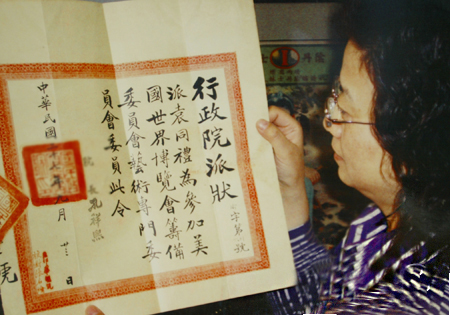 行政院派狀
字第 號
派袁同禮為參加美
國世界博覽會籌備
委員會藝術專門委
員會委員此令
院長孔祥熙
中華民國 年 月 日
號